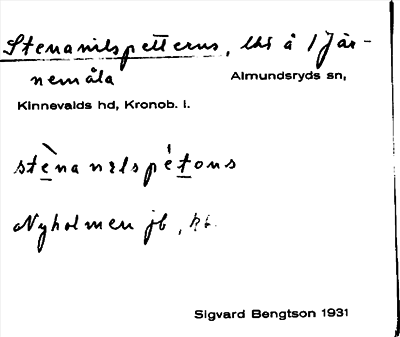 Stenanilspetterns, lht å 1 Jär-
nemåla Almundsryds sn,
Kinnevalds hd, Kronob. l.
stènanɛlspétons
Nyholmen jb, hb.
Sigvard Bengtson 1931